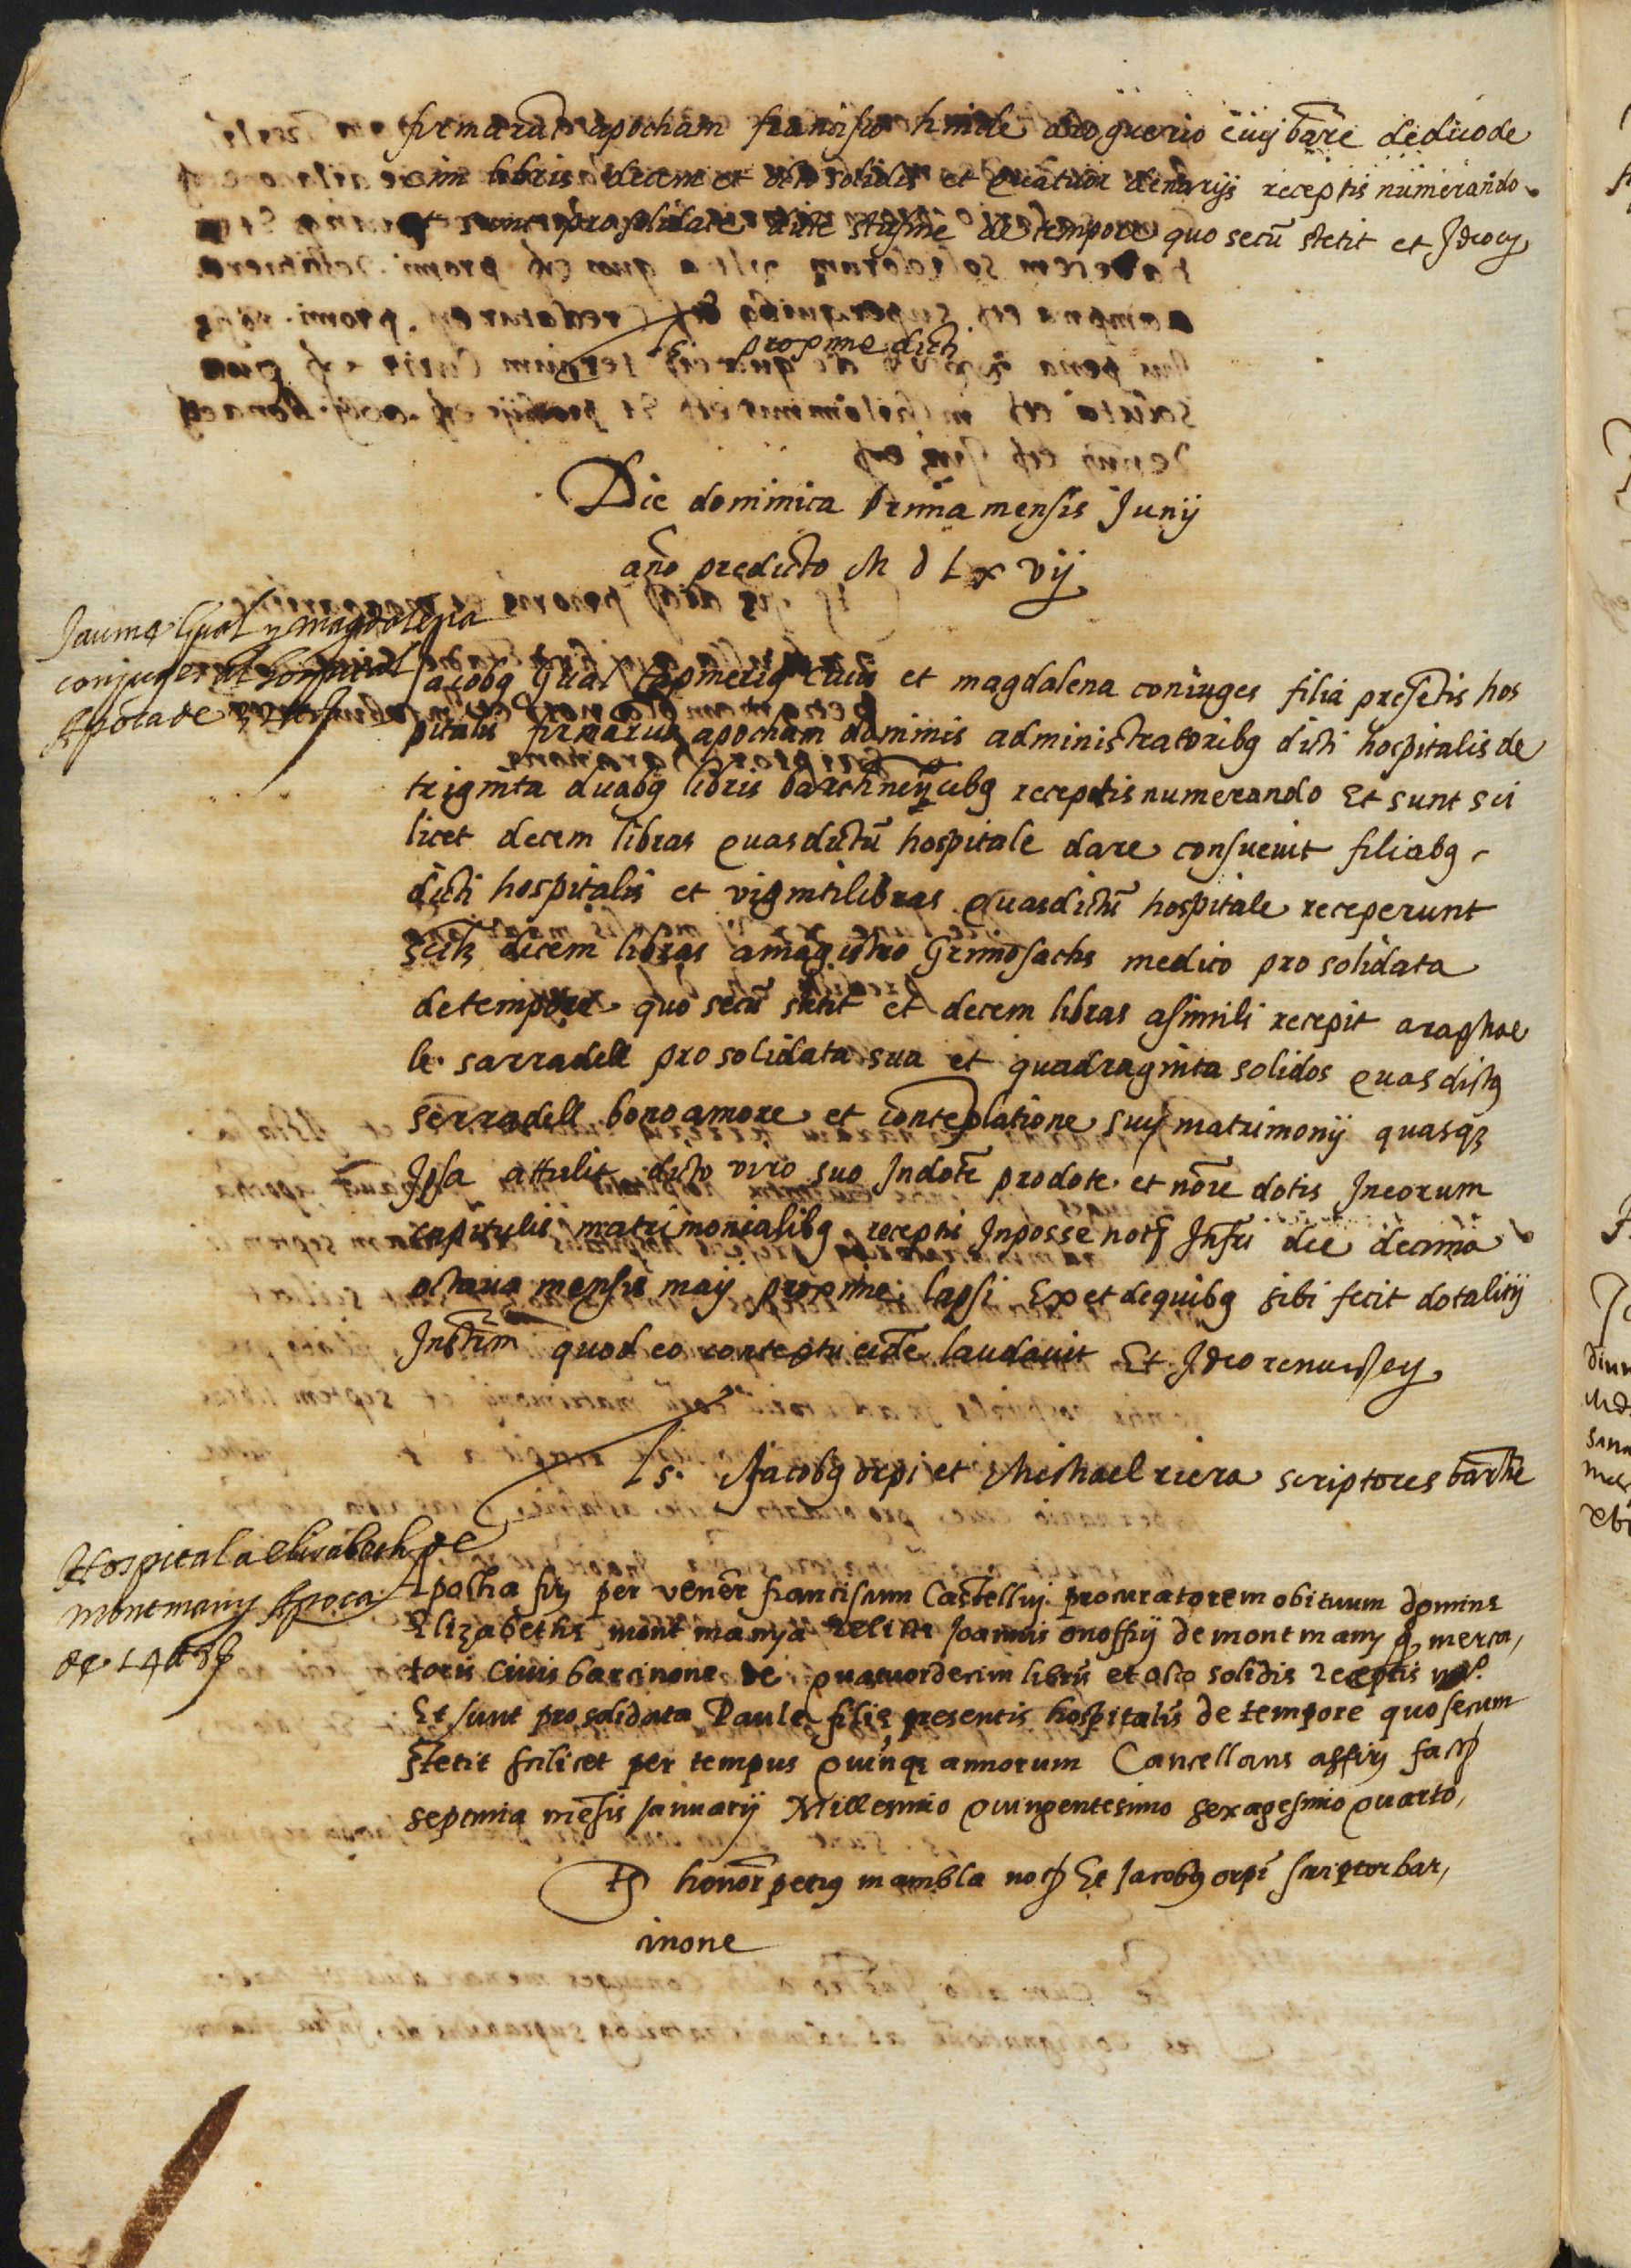 firmarāt apocham francisco hinile droguerio civi barē de duode
cim libris decem et octo solidis et quatuor denarijs receptis numerando
et sunt pro solidate dicte stasme de tempore quo secū stetit et Ideo ej
Ts proxime dicti
Die dominica prima mensis Junij
año predicto M d L x vij
Jaume Gual y magdalena
conjuges al hospital
Apoca de 32 ll
Jacobq Gual civis et magdalena coniuges filia presētis hos
pitalis firmarūt apocham dominis administratoribq dicti hospitalis de
triginta duabq libris receptis numerando Et sunt sci
licet decem libras quas dictū hospitale dare consuevit filiabq
dicti hospitalis et viginti libras quas dictū hospitale receperunt
decem libras a magistro medico pro solidata
de tempore quo secū stetit et decem libras a simili recepit a raphae
le sarradell pro solidata sua et quadraginta solidos quas dictq
serradell bono amore et contēplatione suy matrimonij quasqꝫ
Ipsa attulit dicto viro suo In dotē pro dote et nōie dotis In eorum
capitulis matrimonialibq receptis In posse notȷ Infri die decima
octava mensis maij proxime lapsi Ex et de quibq sibi fecit dotalitij
Instrūm quod eo contextu eidē laudavit Et Ideo renun ej
Ts. Jacobq orpi et Michael riera scriptores barchē
Hospital a elisabeth de
montmany Apoca
de 14 ll 8 ß
Apocha fir per venēr franciscum Castelluj procuratorem obituum domine
Elizabethe montmanya relicte Joannis onoffrij de montmany q merca,
toris civis barcinone de quatuordecim libris et octo solidis receptis nō.
Et sunt pro solidata Paule filie presentis hospitalis de tempore quo secum
stetit scilicet per tempus quinqꝫ annorum Cancellans
septima mēsis Januarij Millesimo quingentesimo sexagesimo quarto,
Ts honōr petrq mambla notȷ Et Jacobq orpi scriptor bar,
cinone